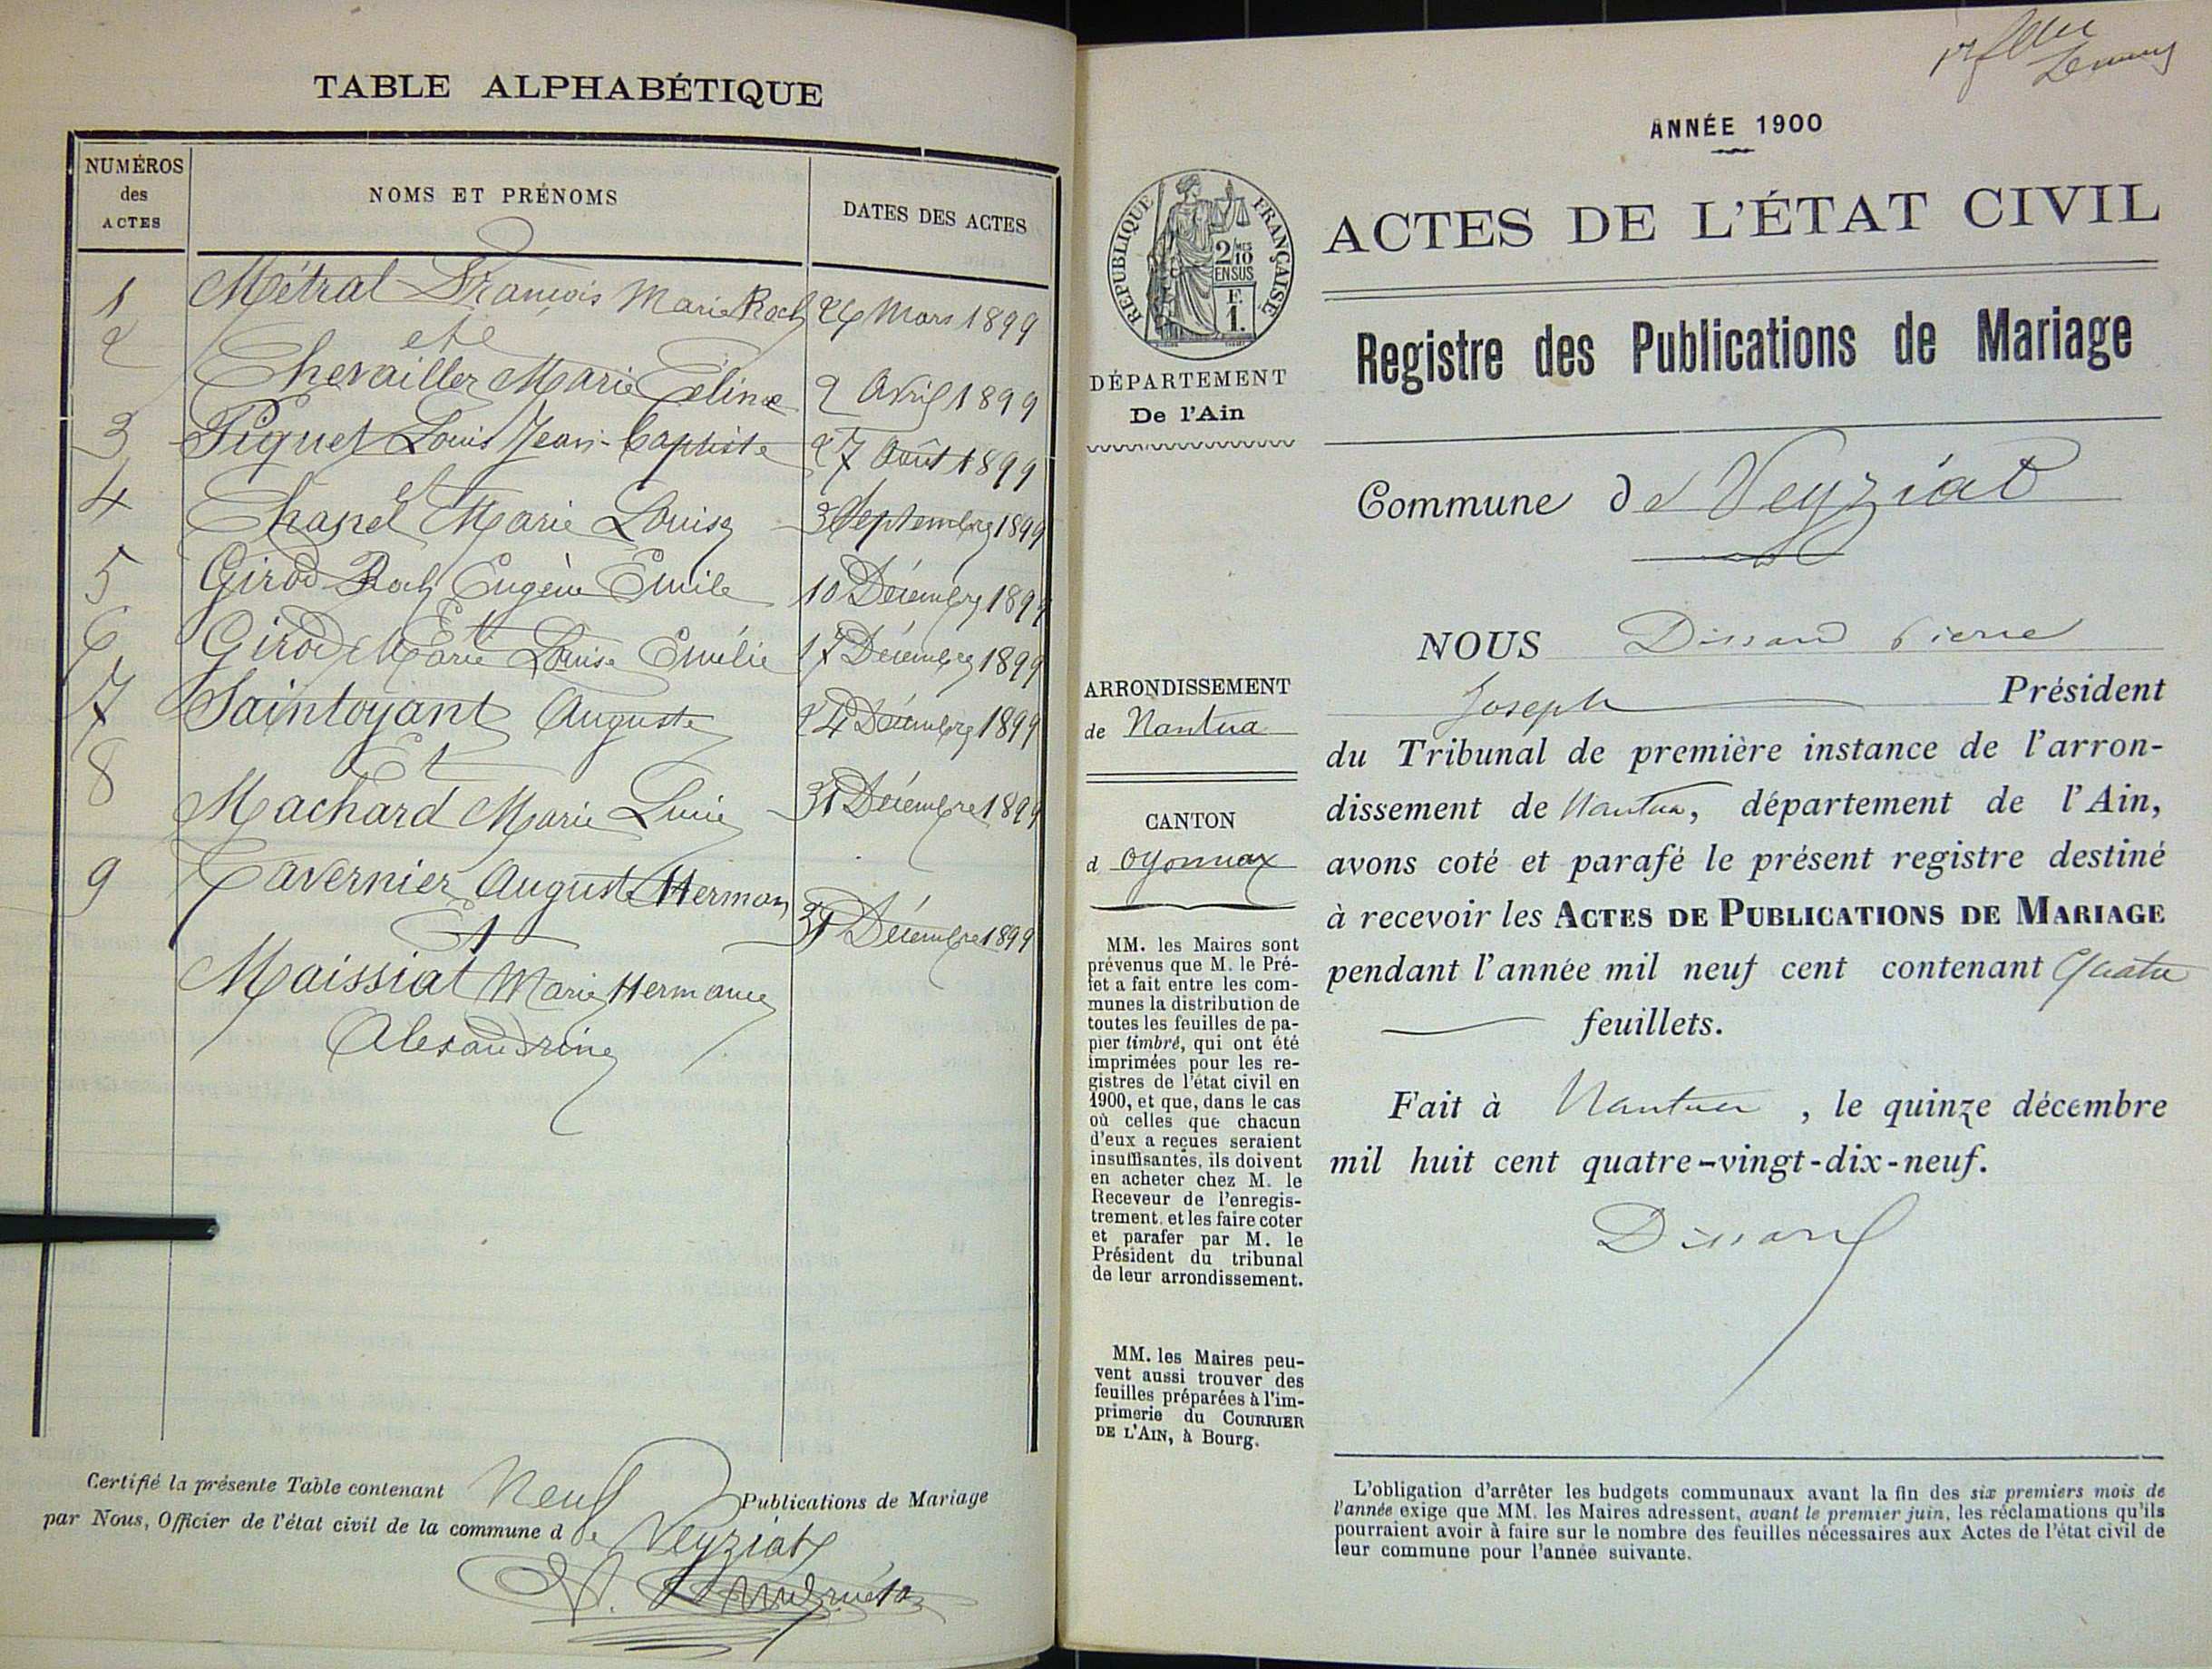 TABLE ALPHABÉTIQUE
NUMÉROS des ACTES
NOMS ET PRÉNOMS
DATES DES ACTES
1 Métral François Marie Roch 26 Mars 1899
2 et
Chevailler Marie Céline 2 Avril 1899
3 Piquet Louis Jean-Baptiste 27 Août 1899
et
4 Chapel Marie Louise 3 Septembre 1899
5 Girod Roch Eugène Emile 10 Décembre 1899
Et
6 Girod Marie Louise Emélie 17 Décembre 1899
7 Saintoyant Auguste 24 Décembre 1899
Et
8 Machard Marie Lucie 31 Décembre 1899
9 Tavernier Auguste Herman
Et 31 Décembre 1899
Maissiat Marie Hermance
Alexandrine
Certifié la présente Table contenant Neuf Publications de Mariage
par Nous, Officier de l'état civil de la commune d de Veyziat
ANNÉE 1900
RÉPUBLIQUE FRANÇAISE
2/10 MES
EN SUS
F.
1.
ACTES DE L'ÉTAT CIVIL
Registre des Publications de Mariage
DÉPARTEMENT
De l'Ain
Commune de Veyziat
ARRONDISSEMENT
de Nantua
CANTON
d Oyonnax
MM. les Maires sont
prévenus que M. le Pré-
fet a fait entre les com-
munes la distribution de
toutes les feuilles de pa-
pier timbré, qui ont été
imprimées pour les re-
gistres de l'état civil en
1900, et que, dans le cas
où celles que chacun
d'eux a reçues seraient
insuffisantes, ils doivent
en acheter chez M. le
Receveur de l'enregis-
trement, et les faire coter
et parafer par M. le
Président du tribunal
de leur arrondissement.
MM. les Maires peu-
vent aussi trouver des
feuilles préparées à l'im-
primerie du COURRIER
DE L'AIN, à Bourg.
NOUS Dissard Pierre
Joseph Président
du Tribunal de première instance de l'arron-
dissement de Nantua, département de l'Ain,
avons coté et parafé le présent registre destiné
à recevoir les ACTES DE PUBLICATIONS DE MARIAGE
pendant l'année mil neuf cent contenant Quatre
feuillets.
Fait à Nantua, le quinze décembre
mil huit cent quatre-vingt-dix-neuf.
Dissard
L'obligation d'arrêter les budgets communaux avant la fin des six premiers mois de
l'année exige que MM. les Maires adressent, avant le premier juin, les réclamations qu'ils
pourraient avoir à faire sur le nombre des feuilles nécessaires aux Actes de l'état civil de
leur commune pour l'année suivante.